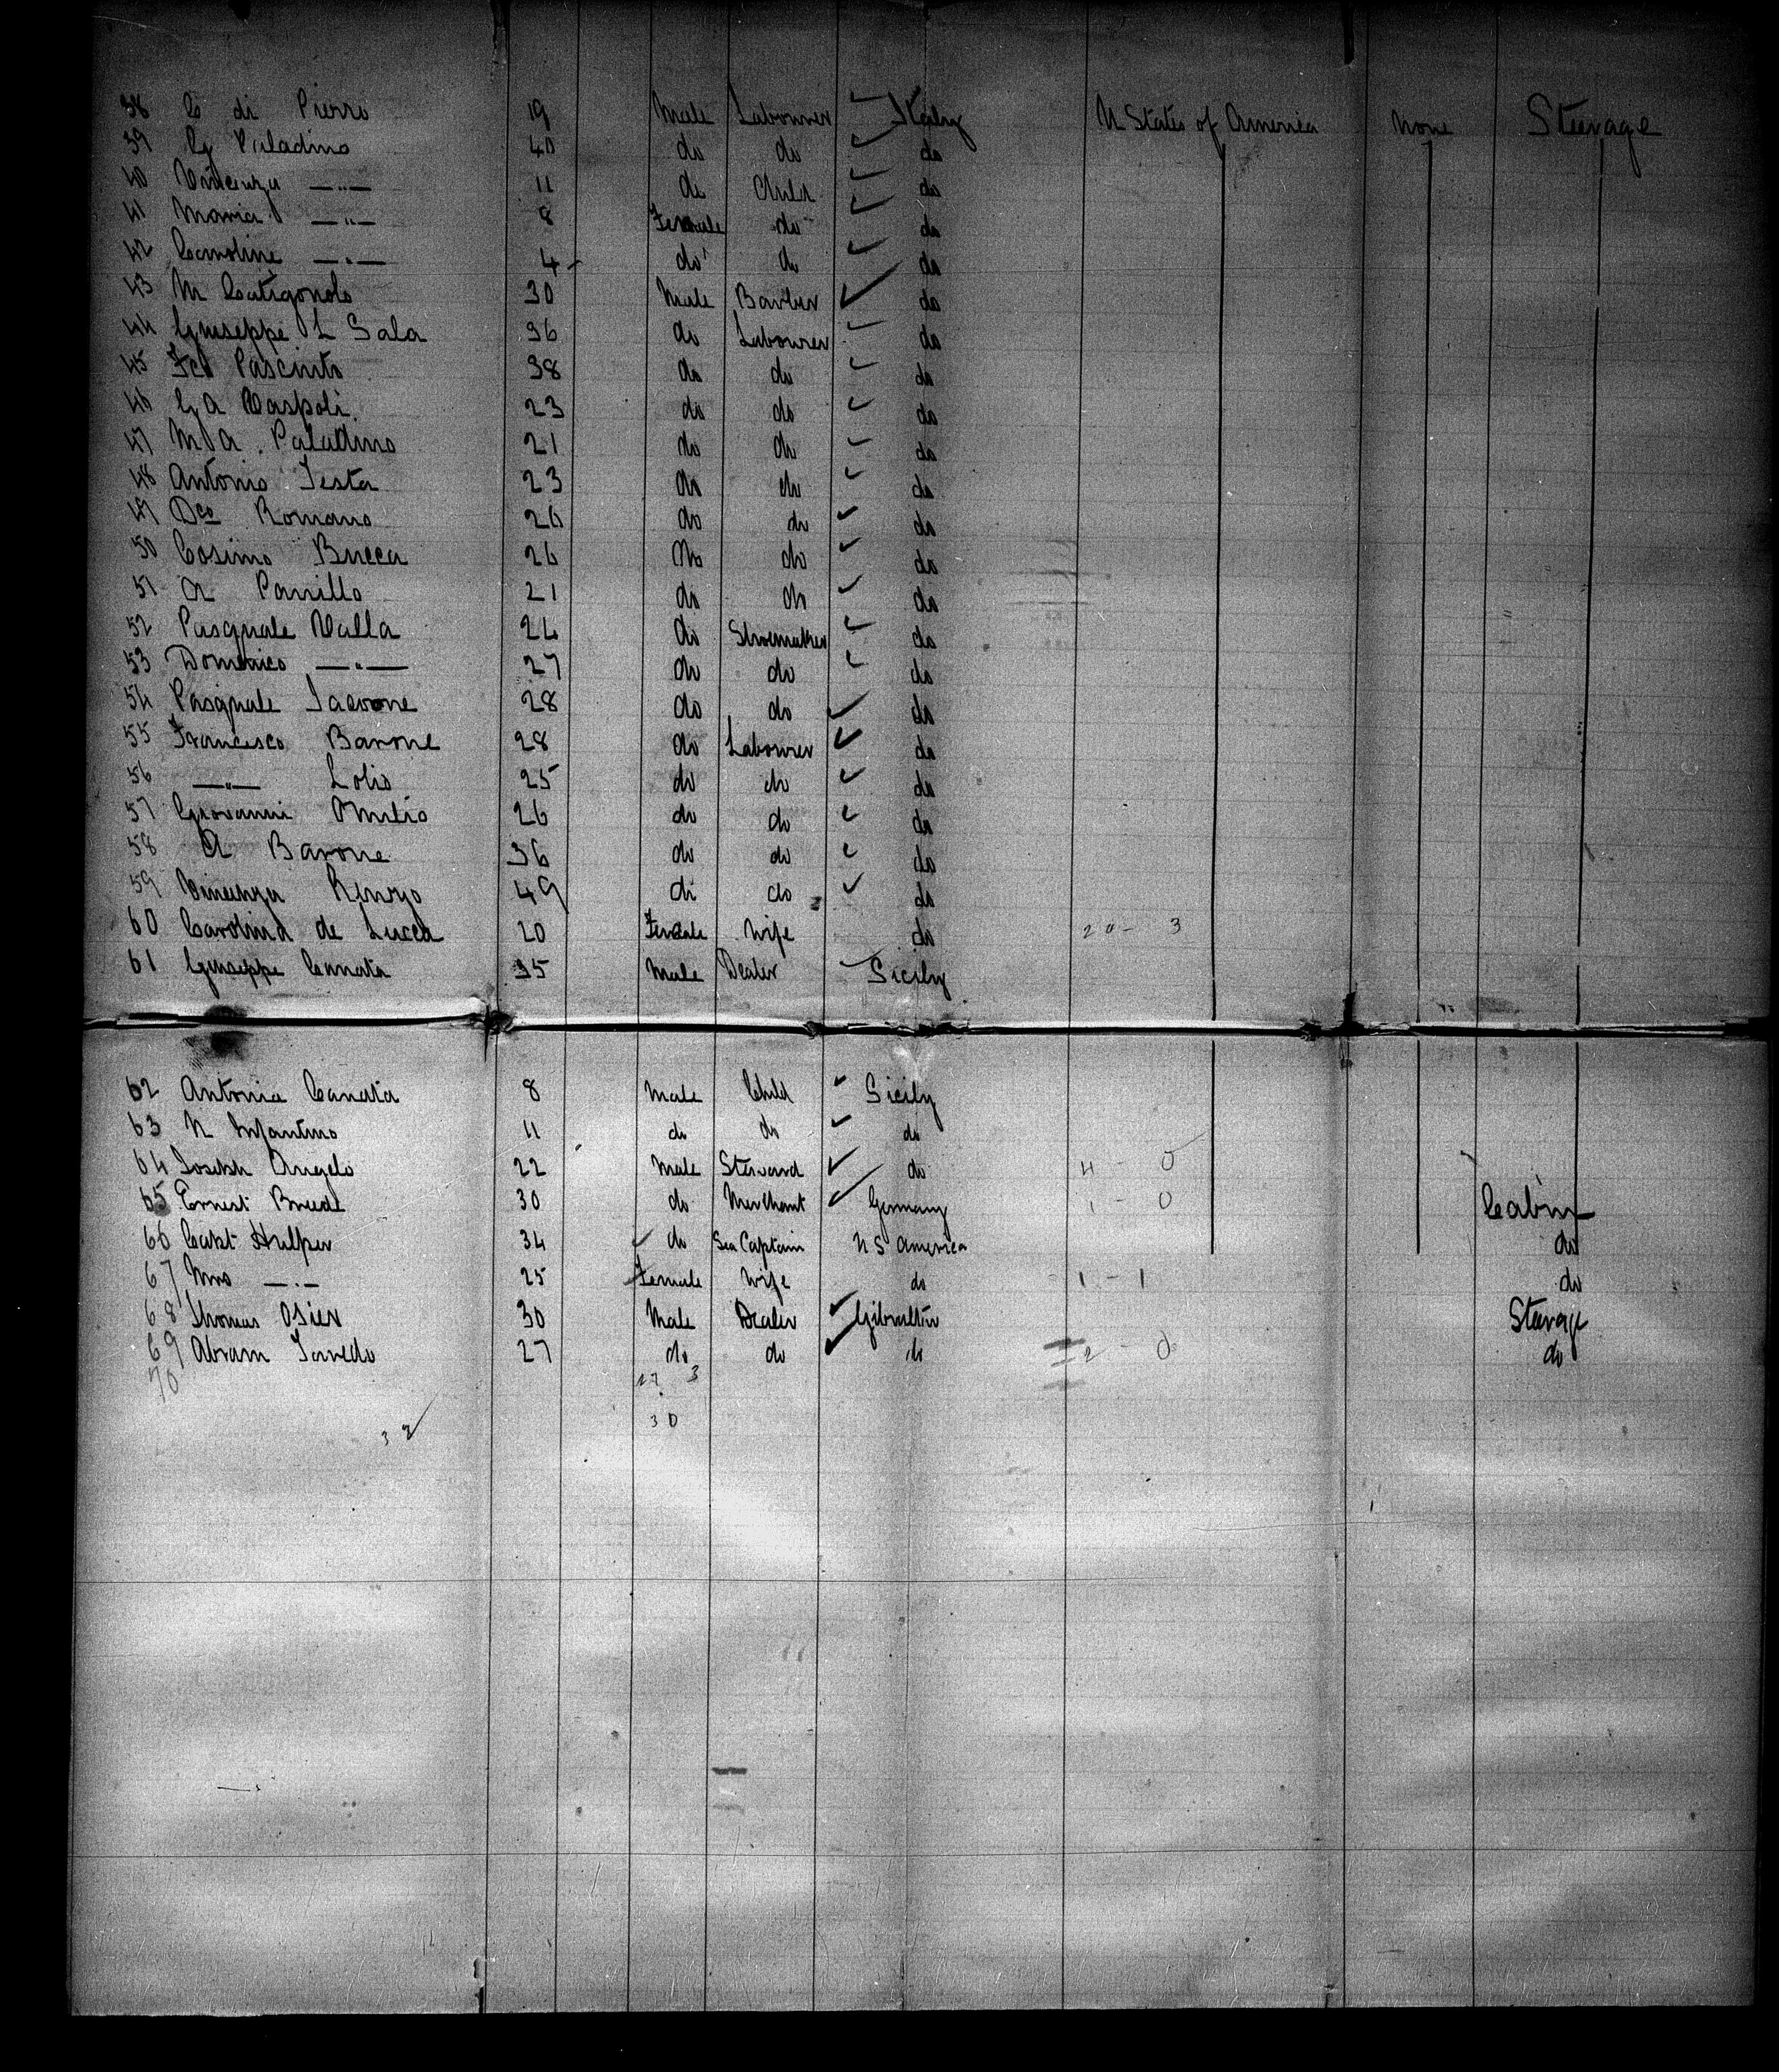 38 C di Pierro 19 Male Labourer Italy U States of America None Steerage
39 G Paladino 40 do do do
40 Vincenza —"— 11 do Child do
41 Maria —"— 8 Female do do
42 Caroline —"— 4 do do do
43 M 30 Male Barber do
44 Giuseppe L Sala 36 do Labourer do
45 38 do do do
46 G A Vaspoli 23 do do do
47 M A Paladino 21 do do do
48 Antonio Testa 23 do do do
49 Dco Romano 26 do do do
50 Cosimo Bucca 26 do do do
51 A Parrillo 21 do do do
52 Pasquale Valla 24 do Shoemaker do
53 Domenico —"— 27 do do do
54 Pasquale Iacvone 28 do do do
55 Francesco Barone 28 do Labourer do
56 —"— Lolio 25 do do do
57 Giovanni 26 do do do
58 A Barone 36 do do do
59 Vincenza 49 do do do
60 Carolina de Lucca 20 Female Wife do 20 - 3
61 Giuseppe Canata 35 Male Dealer Sicily
62 Antonia Canata 8 Male Child Sicily
63 N Infantino 11 do do do
64 Joseph Angelo 22 Male Steward do 4 0
65 Ernest Brede 30 do Merchant Germany 1 - 0 Cabin
66 Capt Hulper 34 do Sea Captain U S America do
67 Mrs —"— 25 Female Wife do 1 - 1 do
68 Thomas Osier 30 Male Dealer Gibraltar Steerage
69 Abram 27 do do do 2 - 0 do
70 27 3
30
32